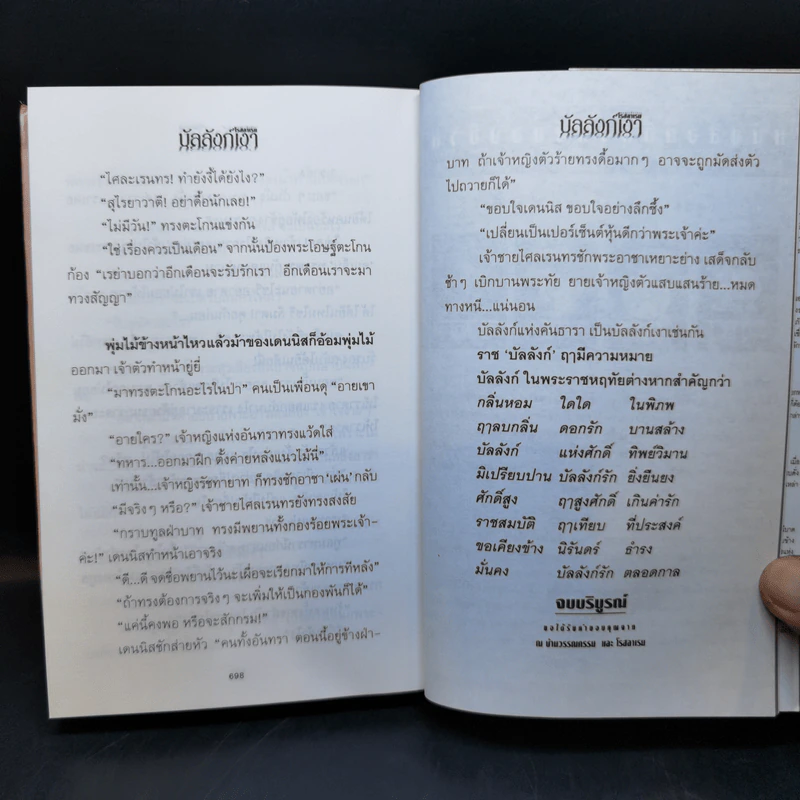 บัลลังก์เงา
“ไศละเรนทร! ทำยังงี้ได้ยังไง?”
“สุไรยาวาตี! อย่าดื้อนักเลย!”
“ไม่มีวัน!” ทรงตะโกนแข่งกัน
“ใช่ เรื่องควรเป็นเดือน” จากนั้นป้องพระโอษฐ์ตะโกน
ก้อง “เรย่าบอกว่าอีกเดือนจะรับรักเรา อีกเดือนเราจะมา
ทวงสัญญา”
พุ่มไม้ข้างหน้าไหวแล้วม้าของเดนนิสก็อ้อมพุ่มไม้
ออกมา เจ้าตัวทำหน้ายู่ยี่
“มาทรงตะโกนอะไรในป่า” คนเป็นเพื่อนดุ “อายเขา
มั่ง”
“อายใคร?” เจ้าหญิงแห่งอันทราทรงแว้ดใส่
“ทหาร...ออกมาฝึก ตั้งค่ายหลังแนวไม้นี่”
เท่านั้น...เจ้าหญิงรัชทายาท ก็ทรงชักอาชา ‘เผ่น’ กลับ
“มีจริงๆ หรือ?” เจ้าชายไศลเรนทรยังทรงสงสัย
“กราบทูลฝ่าบาท ทรงมีพยานทั้งกองร้อยพระเจ้า-
ค่ะ!” เดนนิสทำหน้าเอาจริง
“ดี...ดี จดชื่อพยานไว้นะ เผื่อจะเรียกมาให้การทีหลัง”
“ถ้าทรงต้องการจริงๆ จะเพิ่มให้เป็นกองพันก็ได้”
“แค่นี้คงพอ หรือจะสักกรม!”
เดนนิสชักส่ายหัว “คนทั้งอันทรา ตอนนี้อยู่ข้างฝ่า-
698
บัลลังก์เงา
บาท ถ้าเจ้าหญิงตัวร้ายทรงดื้อมากๆ อาจจะถูกมัดส่งตัว
ไปถวายก็ได้”
“ขอบใจเดนนิส ขอบใจอย่างลึกซึ้ง”
“เปลี่ยนเป็นเปอร์เซ็นต์หุ้นดีกว่าพระเจ้าค่ะ”
เจ้าชายไศลเรนทรชักพระอาชาเหยาะย่าง เสด็จกลับ
ช้าๆ เบิกบานพระทัย ยายเจ้าหญิงตัวแสบแสนร้าย...หมด
ทางหนี...แน่นอน
บัลลังก์แห่งคันธารา เป็นบัลลังก์เงาเช่นกัน
ราช ‘บัลลังก์’ ฤามีความหมาย
บัลลังก์ ในพระราชหฤทัยต่างหากสำคัญกว่า
กลิ่นหอม ใดใด ในพิภพ
ฤาลบกลิ่น ดอกรัก บานสล้าง
บัลลังก์ แห่งศักดิ์ ทิพย์วิมาน
มิเปรียบปาน บัลลังก์รัก ยิ่งยืนยง
ศักดิ์สูง ฤาสูงศักดิ์ เกินค่ารัก
ราชสมบัติ ฤาเทียบ ที่ประสงค์
ขอเคียงข้าง นิรันดร์ ธำรง
มั่นคง บัลลังก์รัก ตลอดกาล
จบบริบูรณ์
ขอได้รับคำขอบคุณจาก
ณ บ้านวรรณกรรม และ โรสลาเรน